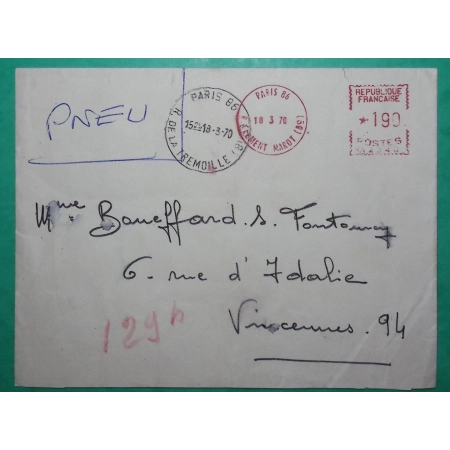 PNEU
PARIS 86
15H 18-3-70
R. DE LA TREMOILLE (8E)
PARIS 86
18 3 70
R. CLEMENT MAROT (8E)
REPUBLIQUE
FRANCAISE
*190
POSTES
Mme Baneffard. S. Fontenay
6. rue d'Idalie
Vincennes. 94
129h